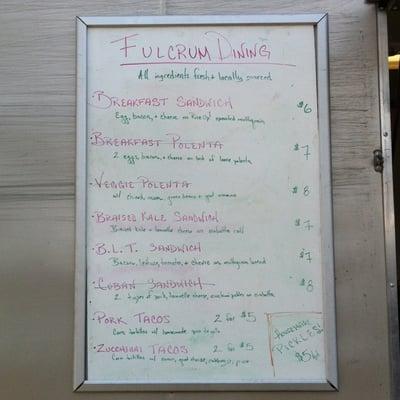 FULCRUM DINING
All ingredients fresh & locally sourced
BREAKFAST SANDWICH $6
Egg, bacon, & cheese on multigrain
BREAKFAST POLENTA $7
2 eggs, bacon, & cheese on bed of polenta
VEGGIE POLENTA $8
w/ chard, green beans & goat
BRAISED KALE SANDWICH $7
Braised kale & cheese on
B.L.T. SANDWICH $7
Bacon, lettuce, tomato, & cheese on multigrain bread
CUBAN SANDWICH $8
2 types of pork, cheese, zucchini pickles on
PORK TACOS 2 for $5
Corn tortillas w/ homemade
ZUCCHINI TACOS 2 for $5
Corn tortillas w/ goat cheese, cabbage,
PICKLES!
$5